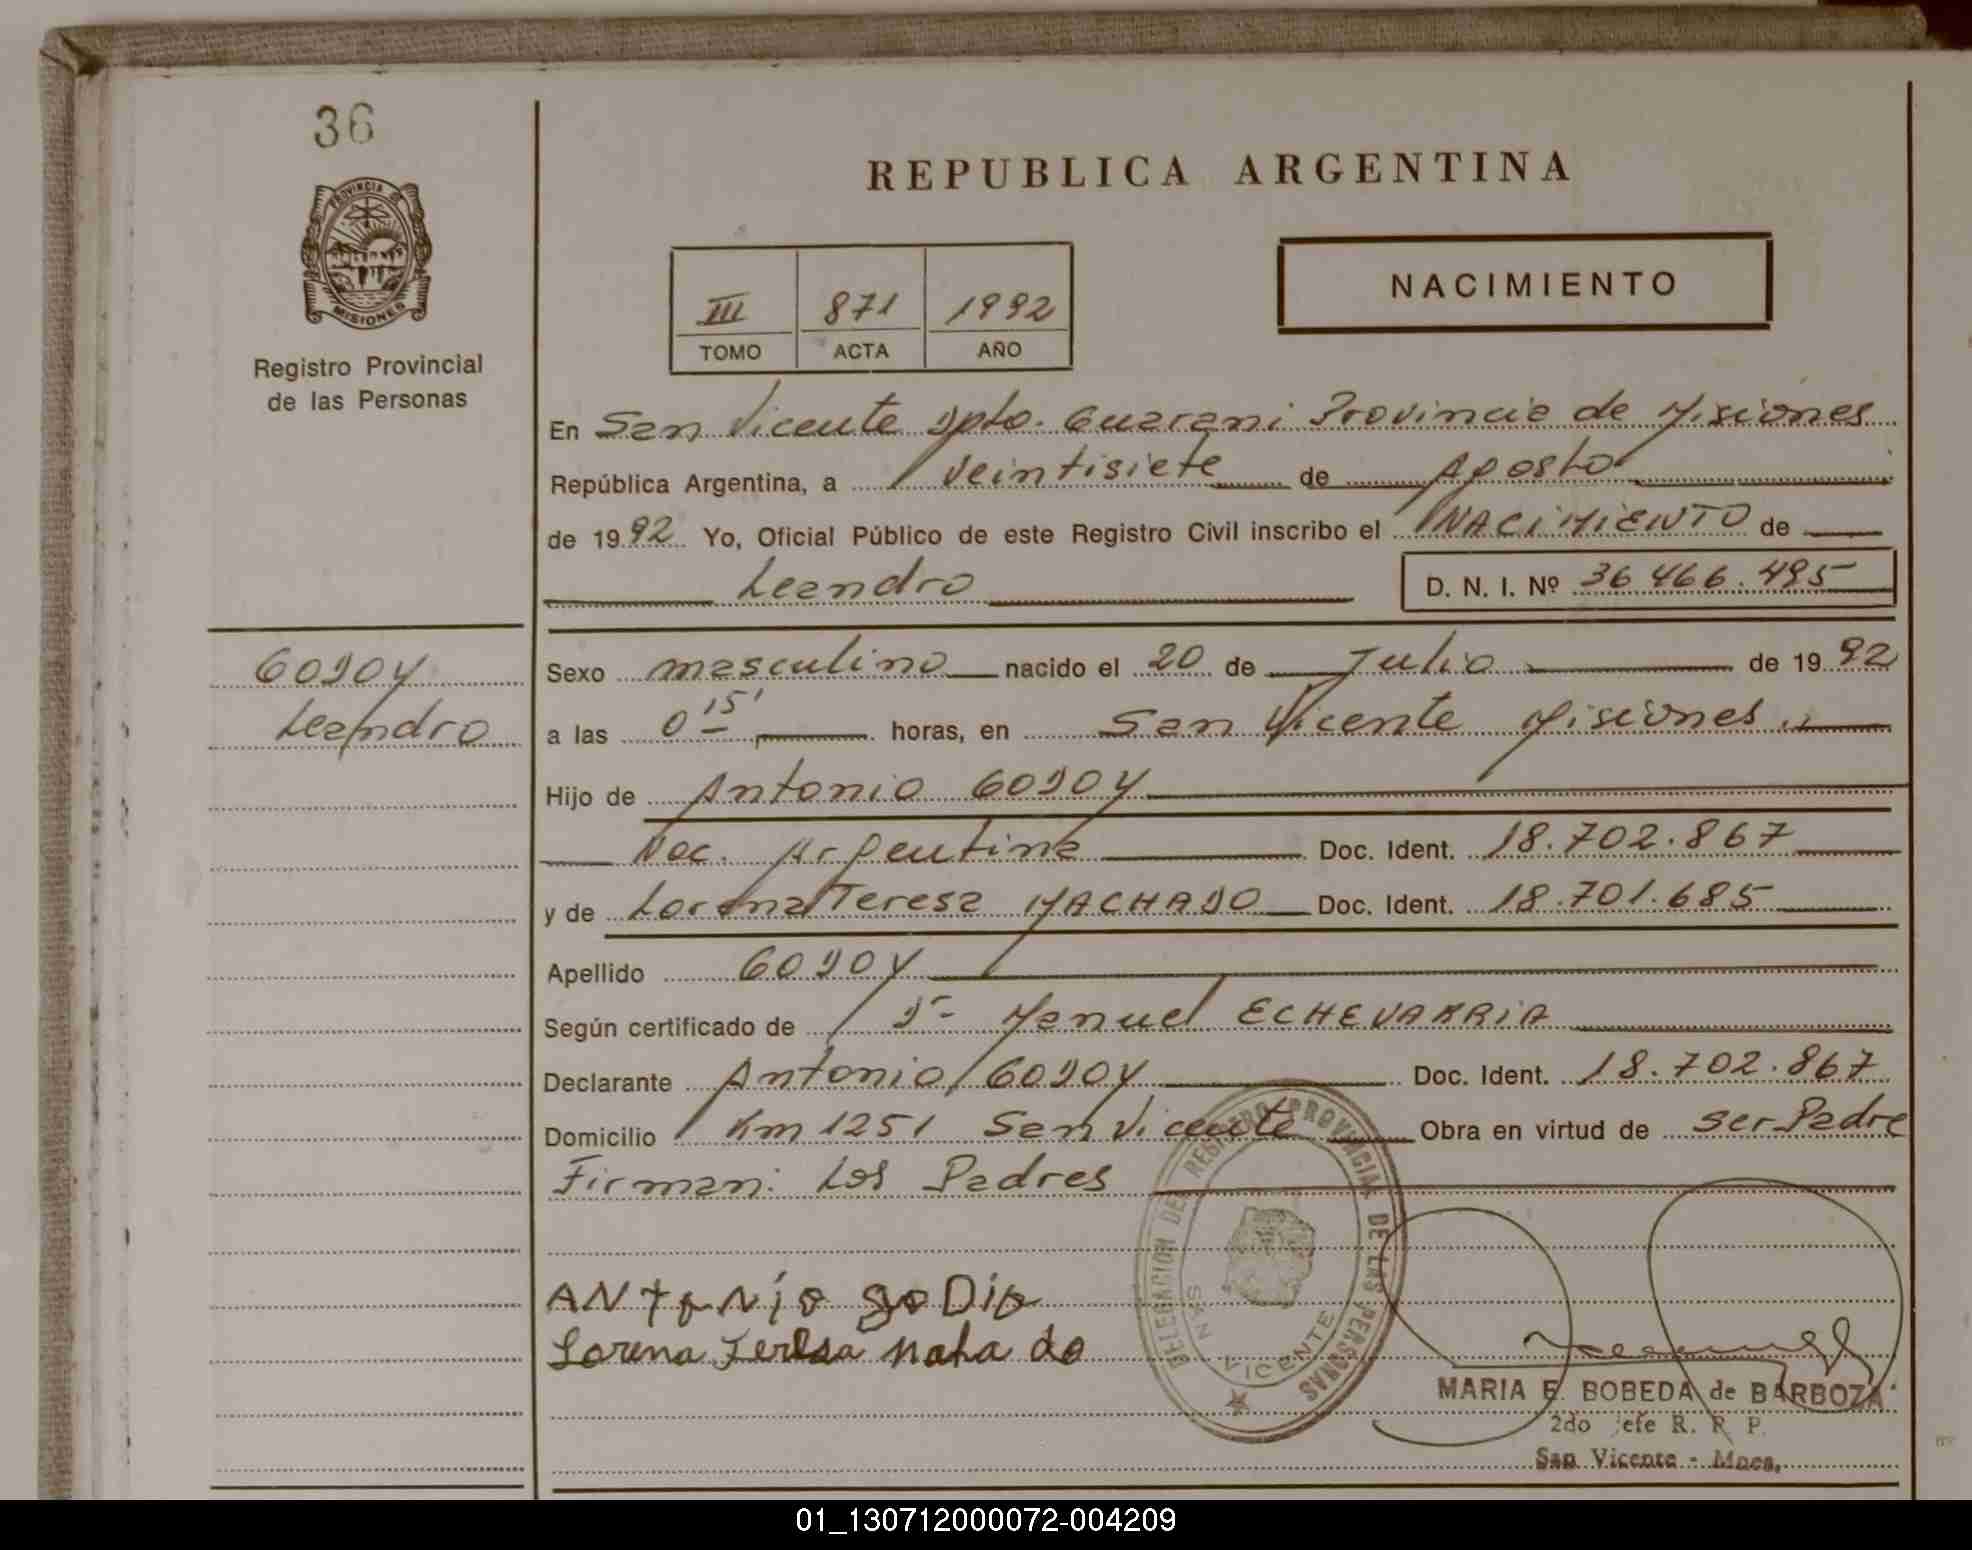 36
PROVINCIA DE
MISIONES
Registro Provincial
de las Personas
GODOY
Leandro
REPUBLICA ARGENTINA
III 871 1992
TOMO ACTA AÑO
NACIMIENTO
En San Vicente Dpto. Guarani Provincia de Misiones
República Argentina, a veintisiete de Agosto
de 1992 Yo, Oficial Público de este Registro Civil inscribo el NACIMIENTO de
Leandro D. N. I. Nº 36 466.495
Sexo masculino nacido el 20 de Julio de 1992
a las 0 15' horas, en San Vicente Misiones
Hijo de Antonio GODOY
Nac. Argentina Doc. Ident. 18.702.867
y de Lorena Teresa MACHADO Doc. Ident. 18.701.685
Apellido GODOY
Según certificado de Dr Manuel ECHEVARRIA
Declarante Antonio GODOY Doc. Ident. 18.702.867
Domicilio Km 1251 San Vicente Obra en virtud de ser Padre
Firman: Los Padres
ANtoNio goDio
Lorena Teresa maha do
DELEGACION DEL REGISTRO PROVINCIAL DE LAS PERSONAS
SAN VICENTE
MARIA E. BOBEDA de BARBOZA
2do Jefe R. P. P.
San Vicente - Mnes.
01_130712000072-004209